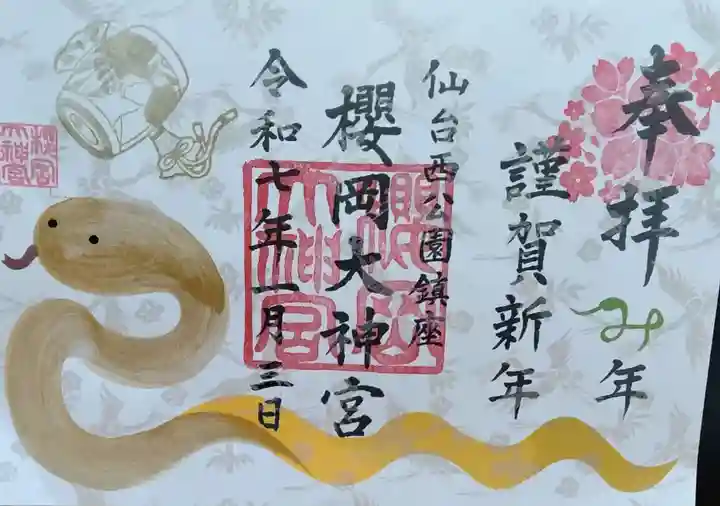 奉拝
み年
謹賀新年
仙台西公園鎮座
櫻岡大神宮
令和七年一月三日
櫻岡大神宮